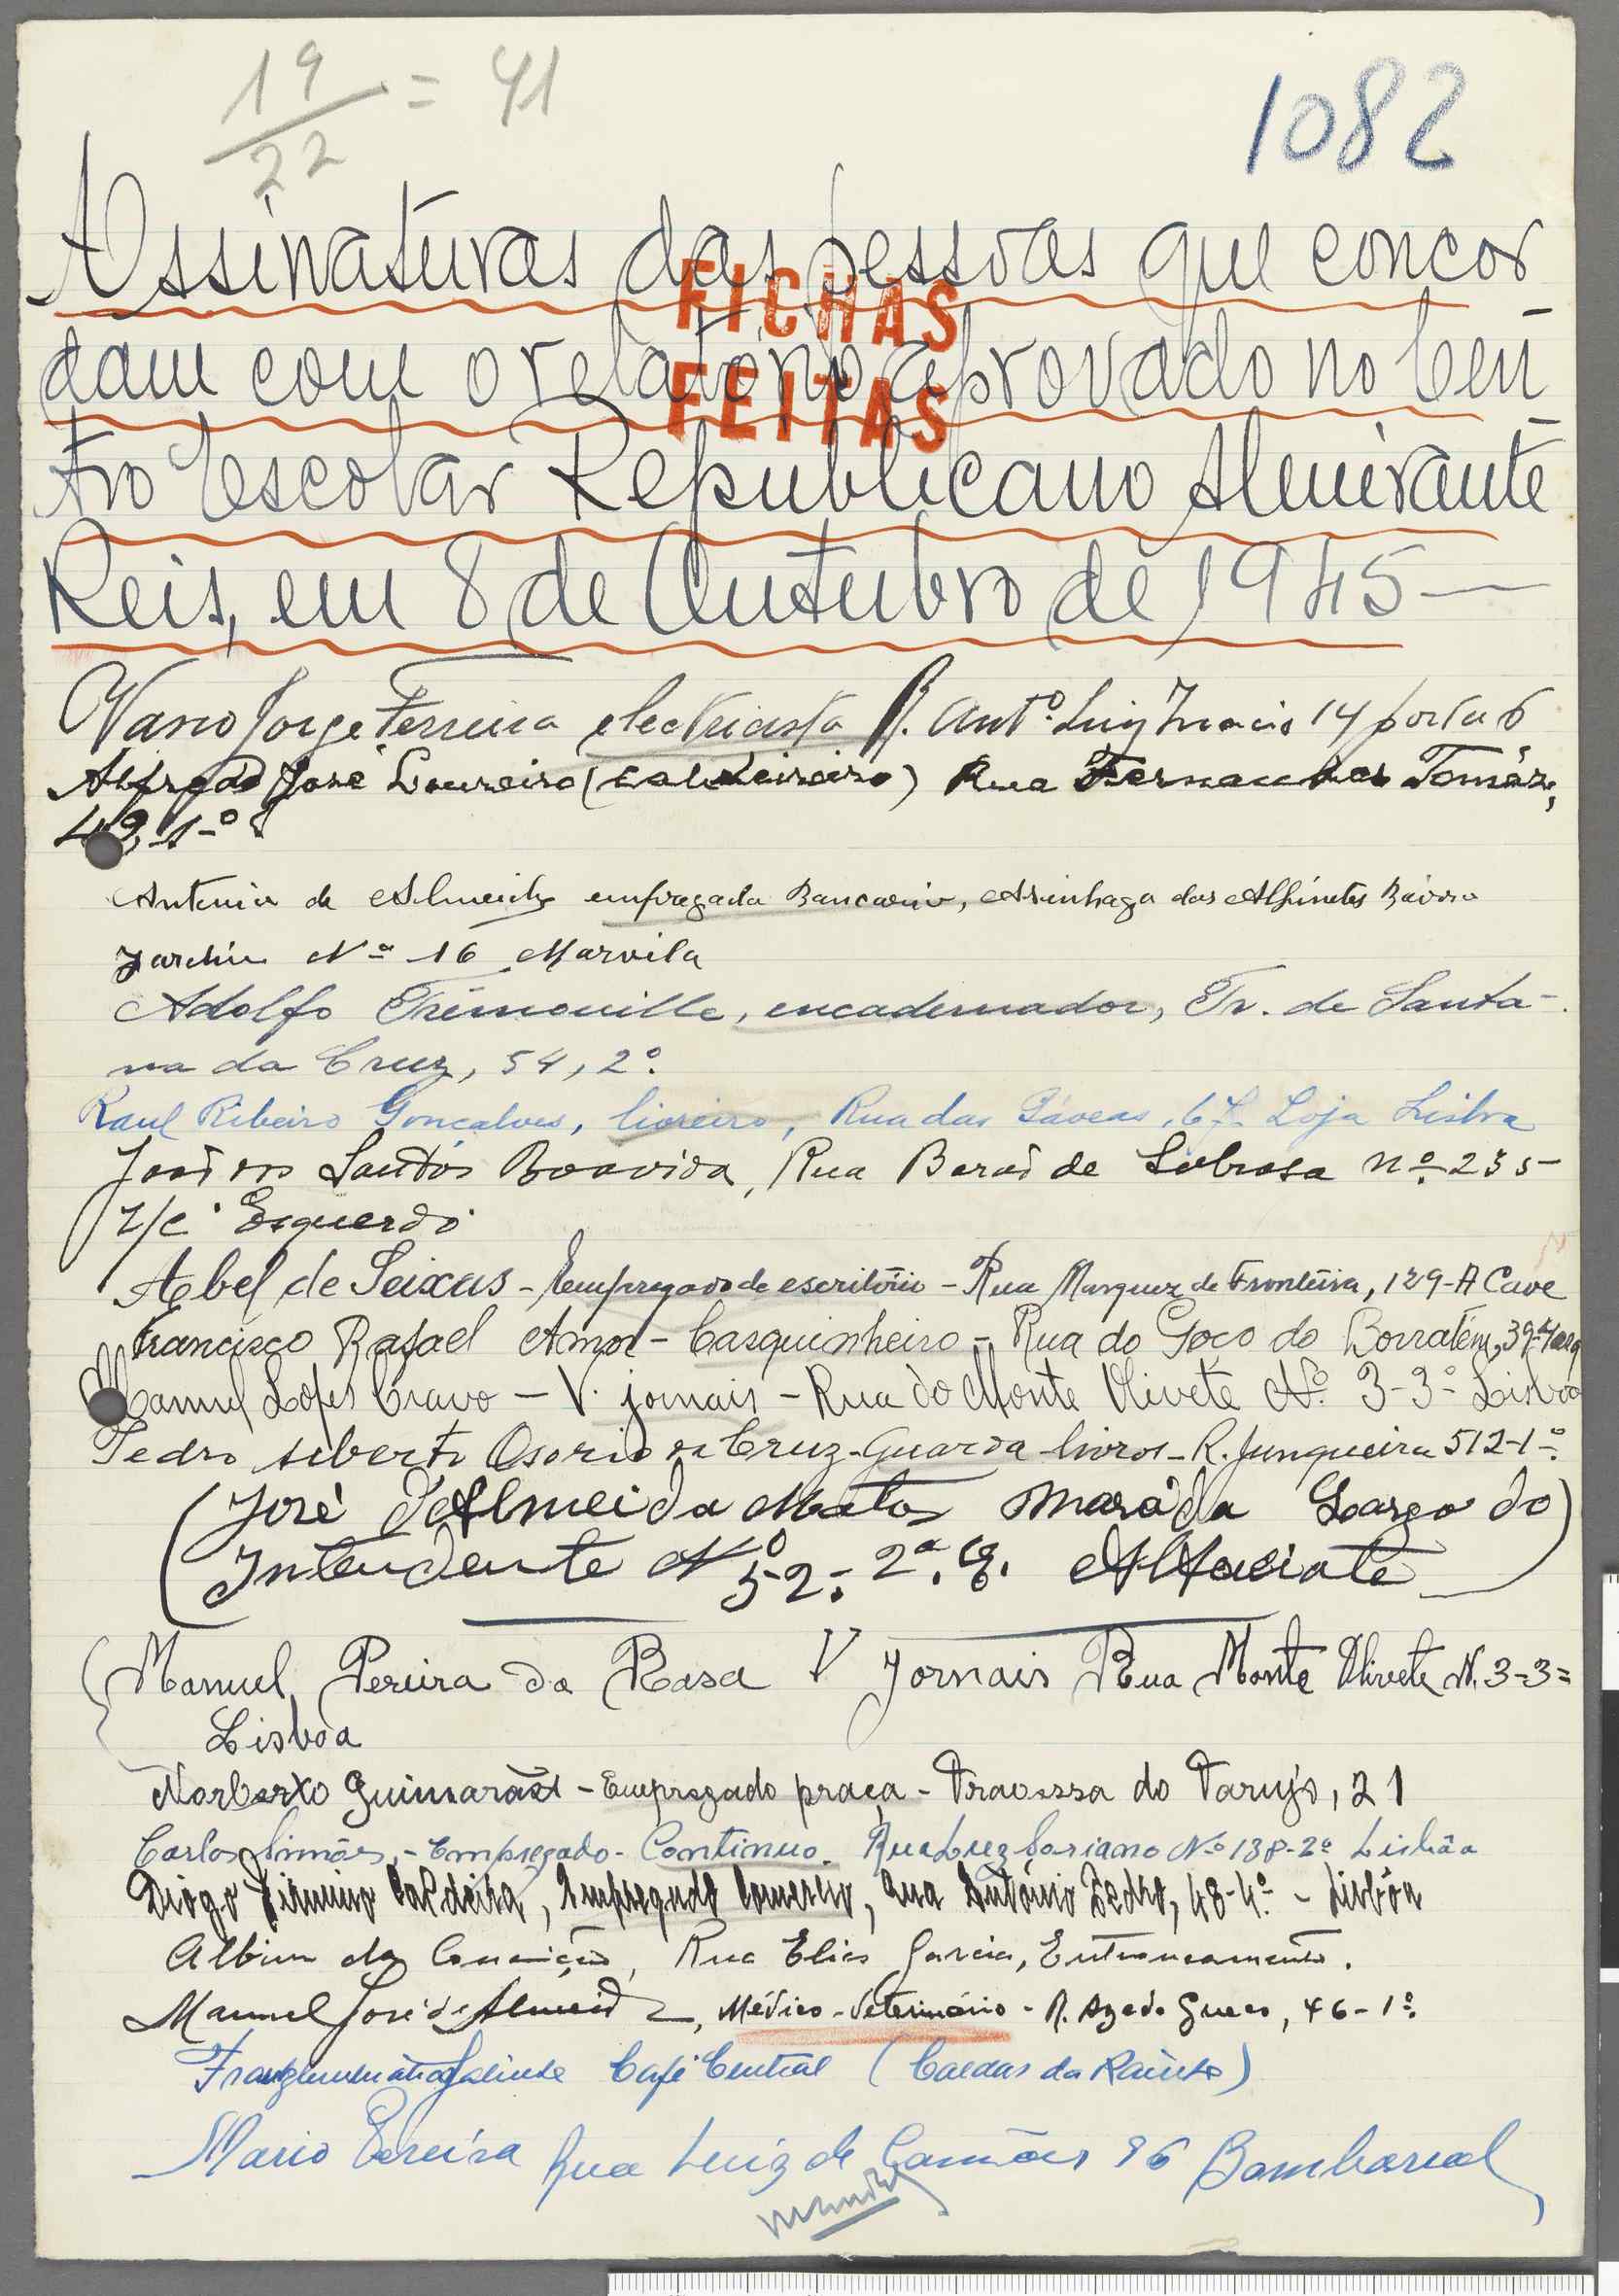 19/22 = 41
1082
Assinaturas das pessoas que concor
FICHAS
dam com o relatório aprovado no Cen
FEITAS
tro Escolar Republicano Almirante
Reis, em 8 de Outubro de 1945 —
Jorge Ferreira electricista R. Antº. Luiz Inacio 14 porta 6
Alfredo José Loureiro (caldeireiro) Rua Fernandes Tomáz,
49, 1-º
de Almeida empregada Bancario, Asinhaga dos Alfinetes Bairro
Jardim Nº 16 Marvila
Adolfo Trémouille, encadernador, Tr. de Santa-
na da Cruz, 54, 2º.
Raul Ribeiro Gonçalves, livreiro, Rua das Gáveas, 67- Loja Lisboa
João dos Santos Boavida, Rua Barão de Sabrosa nº 235-
r/c Esquerdo
Abel de Seixas - Empregado de escritório - Rua Marquez de Fronteira, 129-A Cave
Francisco Rafael Amor - Casquinheiro - Rua do Poço do Borratém, 39-4º
Manuel Lopes Cravo - V. jornais - Rua do Monte Olivete Nº 3-3º Lisboa
Pedro Alberto Osorio da Cruz - Guarda-livros - R. Junqueira 512-1º.
(José d'Almeida Matos morada Largo do)
(Intendente Nº 52. 2º. E. Alfaiate)
Manuel Pereira da Rosa V Jornais Rua Monte Olivete N. 3-3=
Lisboa
Norberto Guimarães - Empregado praça - Travessa do Tarujo, 21
Carlos Simões, - Empregado - Continuo. Rua Luz Soriano Nº 138-2º Lisbôa
Diogo Firmino Caldeira, Empregado Comercio, Rua António Pedro, 48-4º. - Lisbôa
Albino da Conceição, Rua Elias Garcia, Entroncamento.
Manuel José de Almeida, Médico-Veterinário - R. Azedo Gneco, 46-1º.
Café Central (Caldas da Rainha)
Mario Pereira Rua Luiz de Camões 96 Bombarral